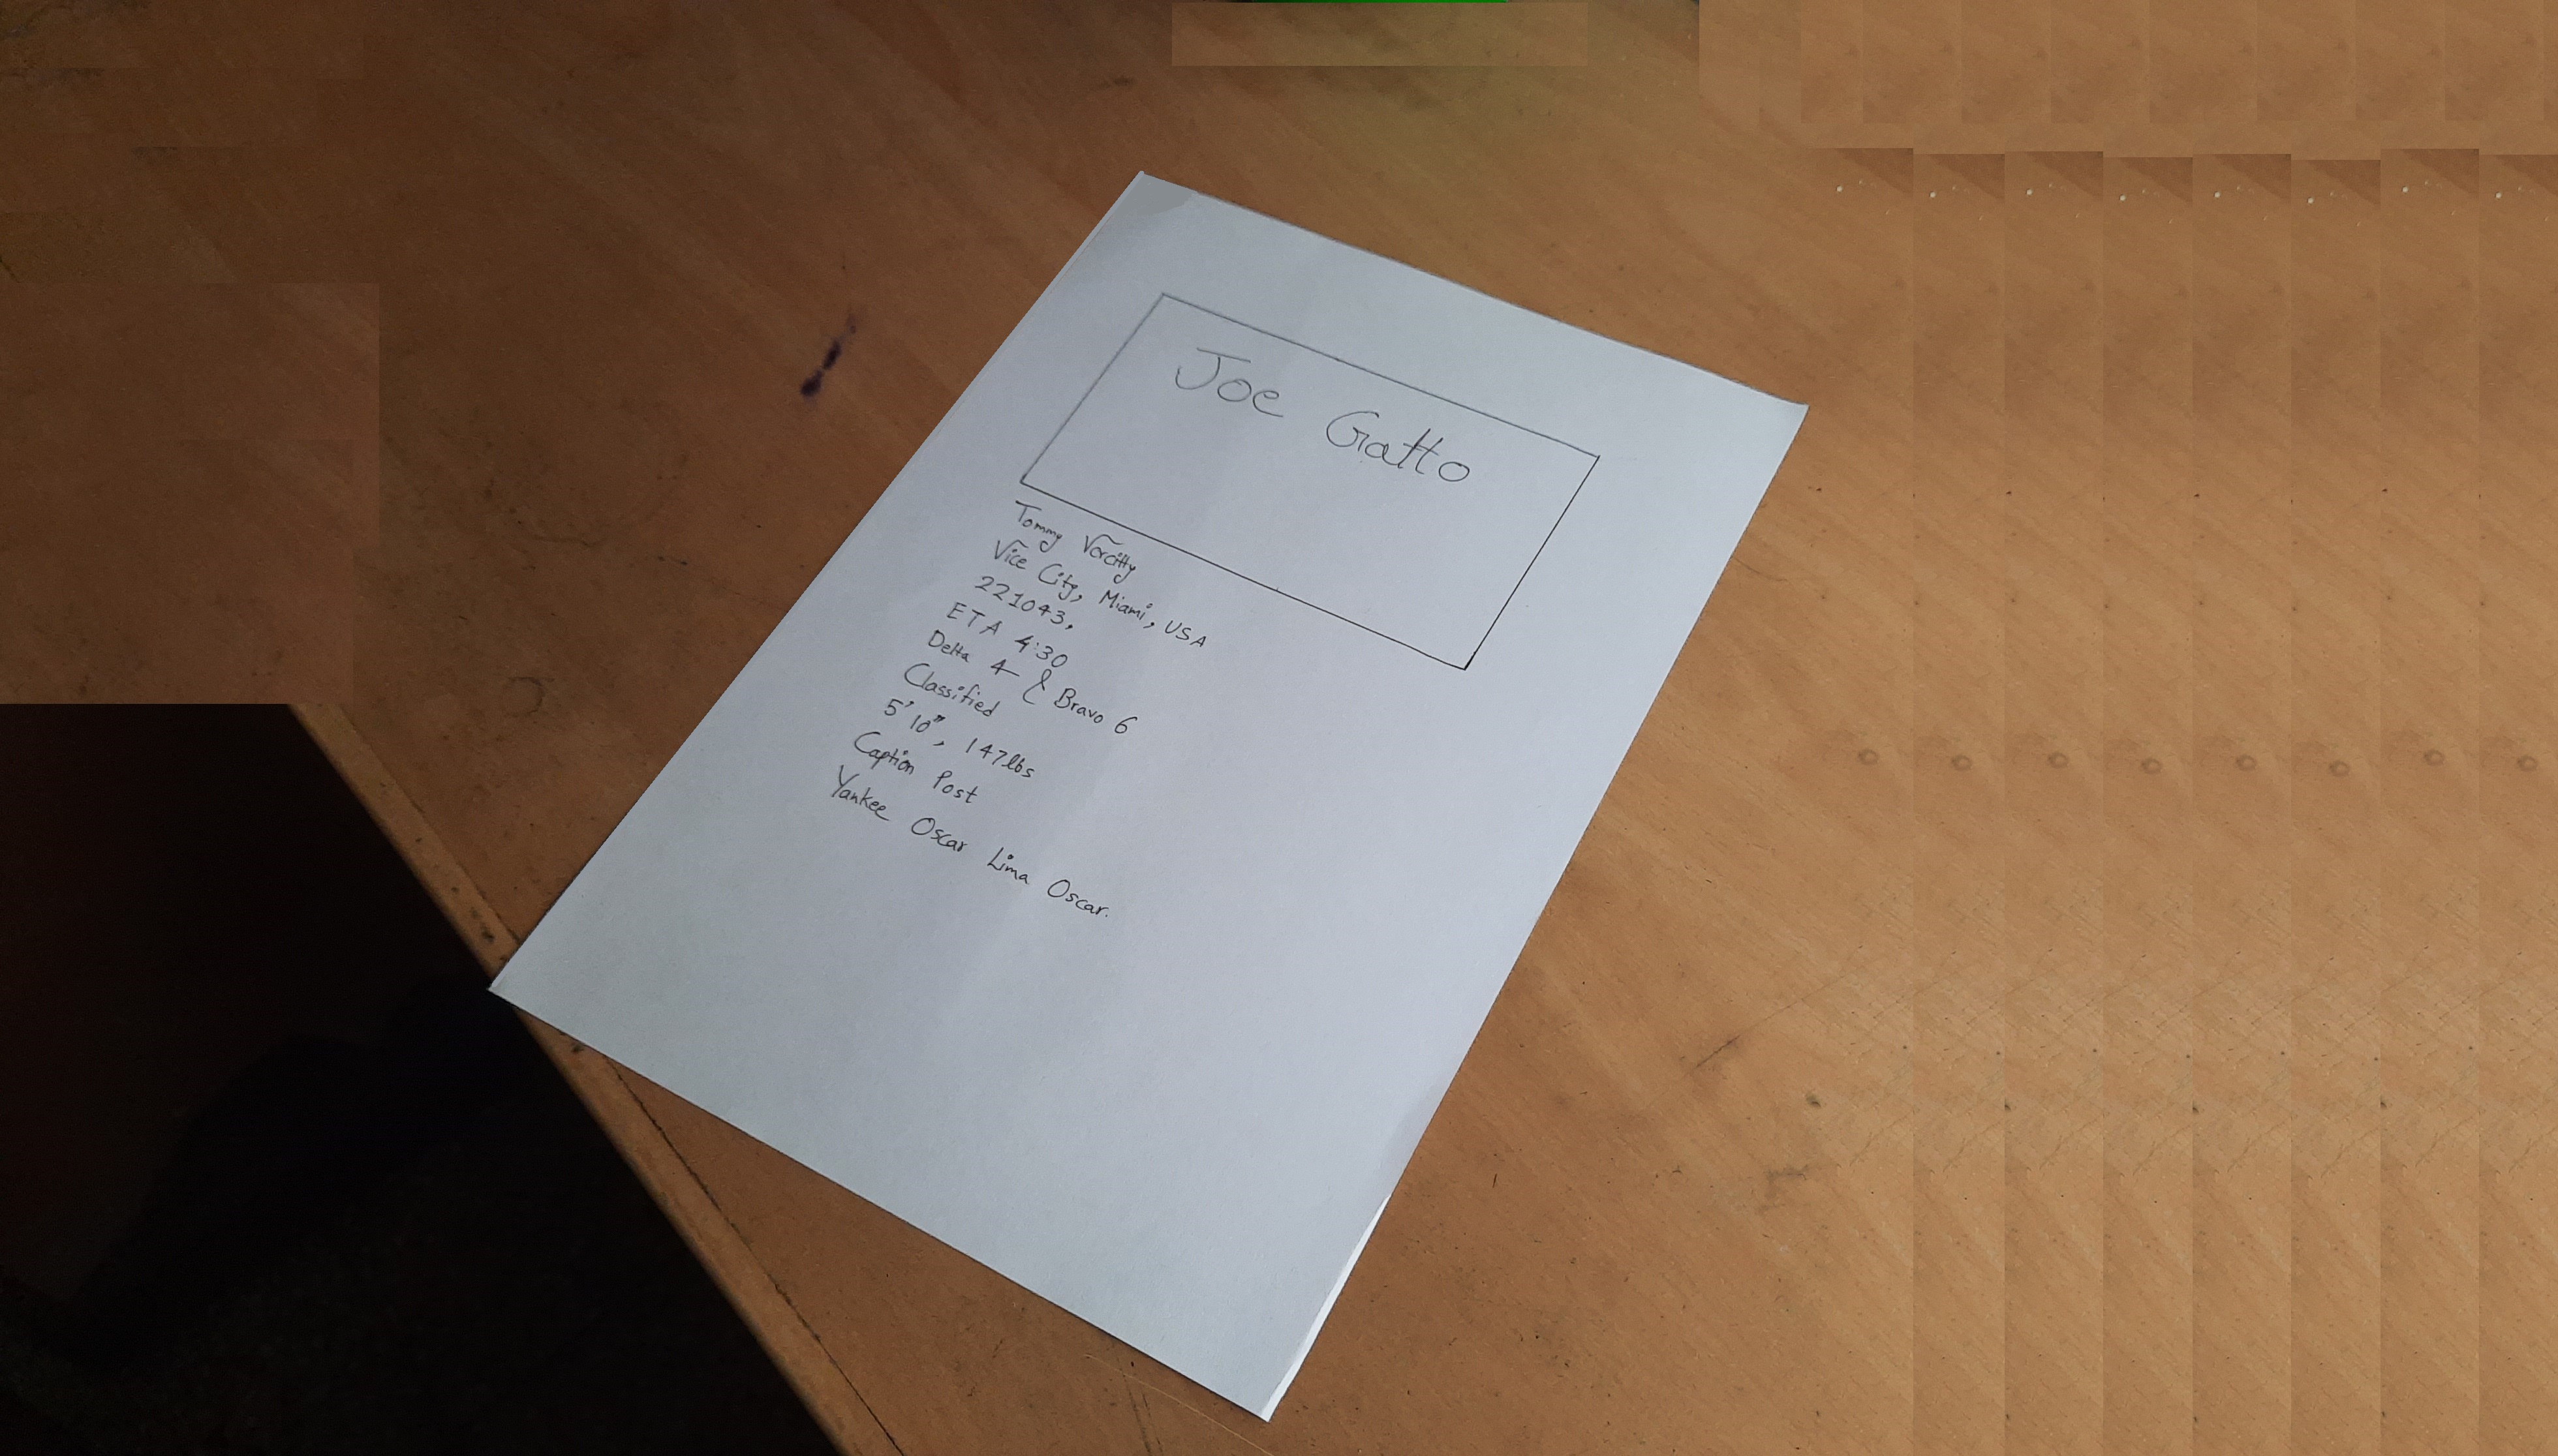 Joe Gatto
Tommy Vercitty
Vice City, Miami, USA
221043,
ETA 4:30
Delta 4 & Bravo 6
Classified
5'10", 147lbs
Caption Post
Yankee Oscar Lima Oscar.